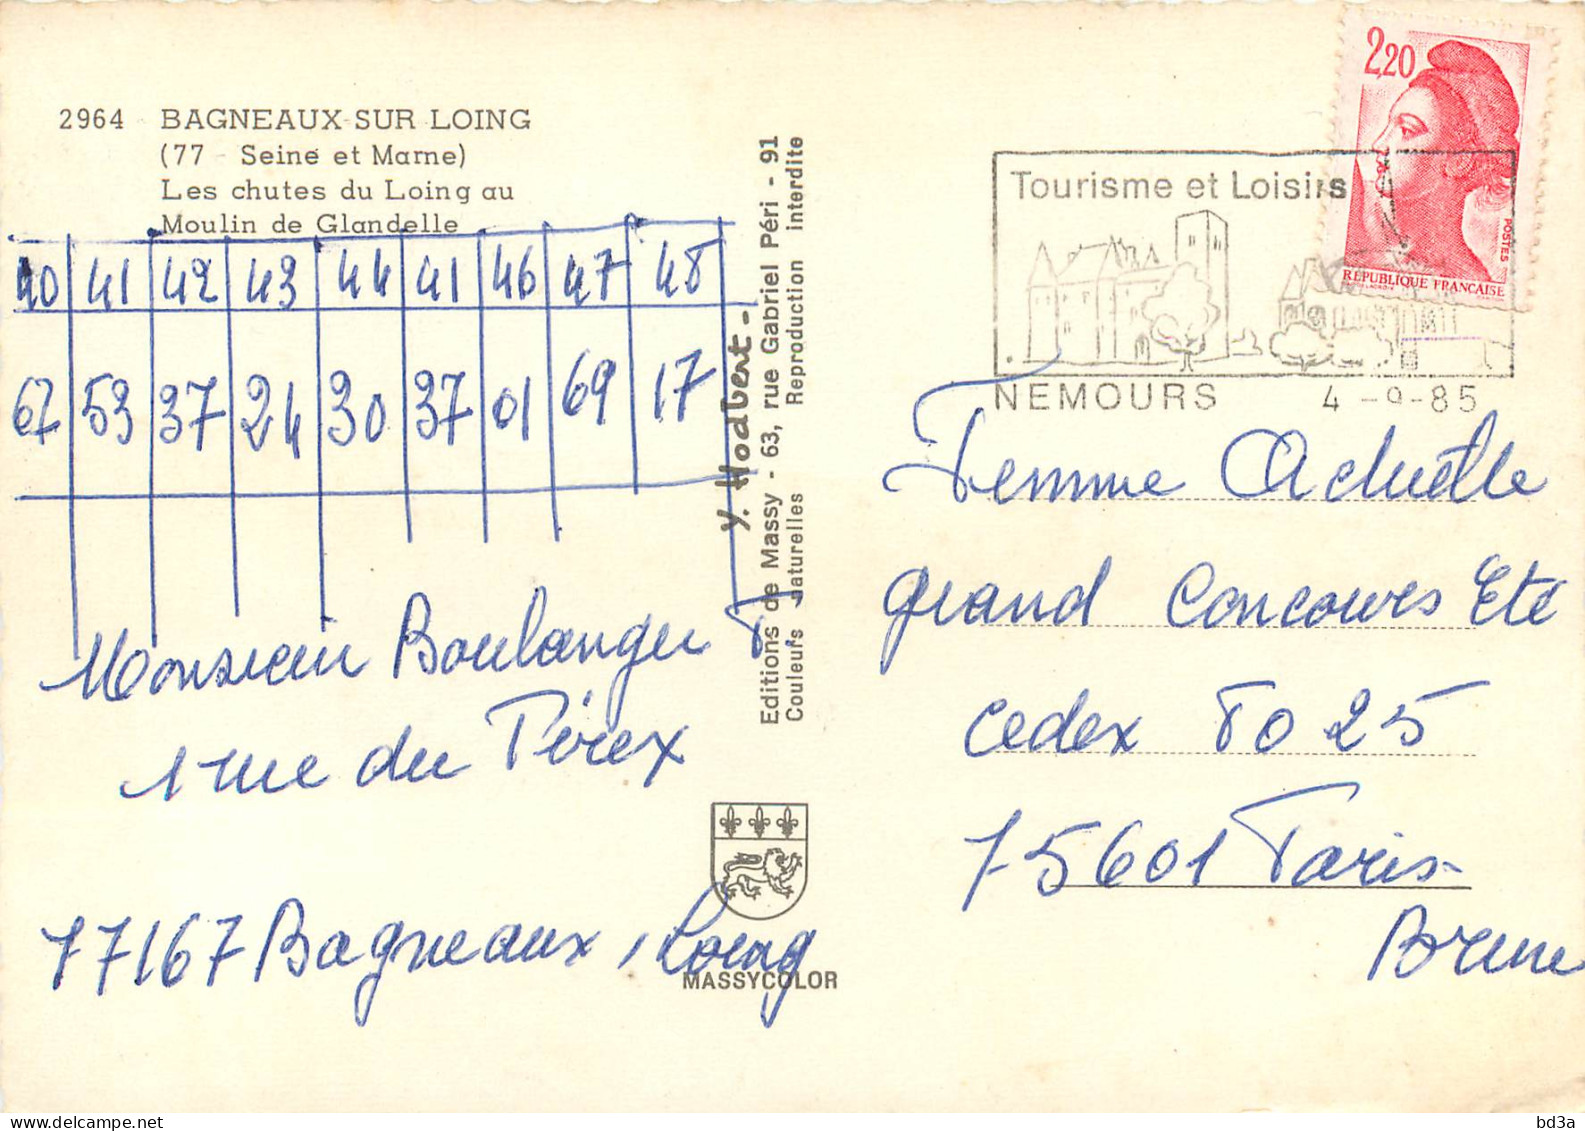 2964 BAGNEAUX-SUR-LOING
(77 - Seine et Marne)
Les chutes du Loing au
Moulin de Glandelle
40 41 42 43 44 41 46 47 48
67 53 37 24 30 37 01 69 17
Monsieur Boulanger
1 rue du Pérex
77167 Bagneaux / Loing
Y. Hodbert -
Editions de Massy - 63, rue Gabriel Péri - 91
Couleurs Naturelles Reproduction interdite
MASSYCOLOR
2,20
POSTES
REPUBLIQUE FRANCAISE
Tourisme et Loisirs
NEMOURS 4 -9-85
Femme Actuelle
grand Concours Eté
Cedex 80 25
75601 Paris
Brune
delcampe.net
bd3a